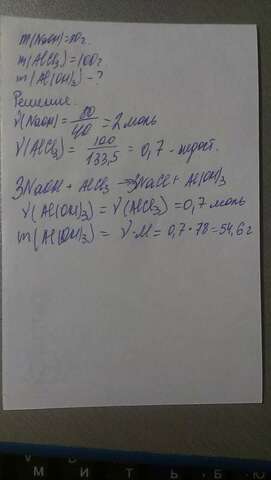 m(NaOH)=80г.
m(AlCl₃)=100г
m(Al(OH)₃)-?
Решение.
ν(NaOH)= 80/40 =2 моль
ν(AlCl₃)= 100/133,5 = 0,7 - недост.
3NaOH + AlCl₃ → 3NaCl + Al(OH)₃
ν(Al(OH)₃) = ν(AlCl₃) = 0,7 моль
m(Al(OH)₃) = ν·M = 0,7·78 = 54,6 г
М И Т Ь Б Ю